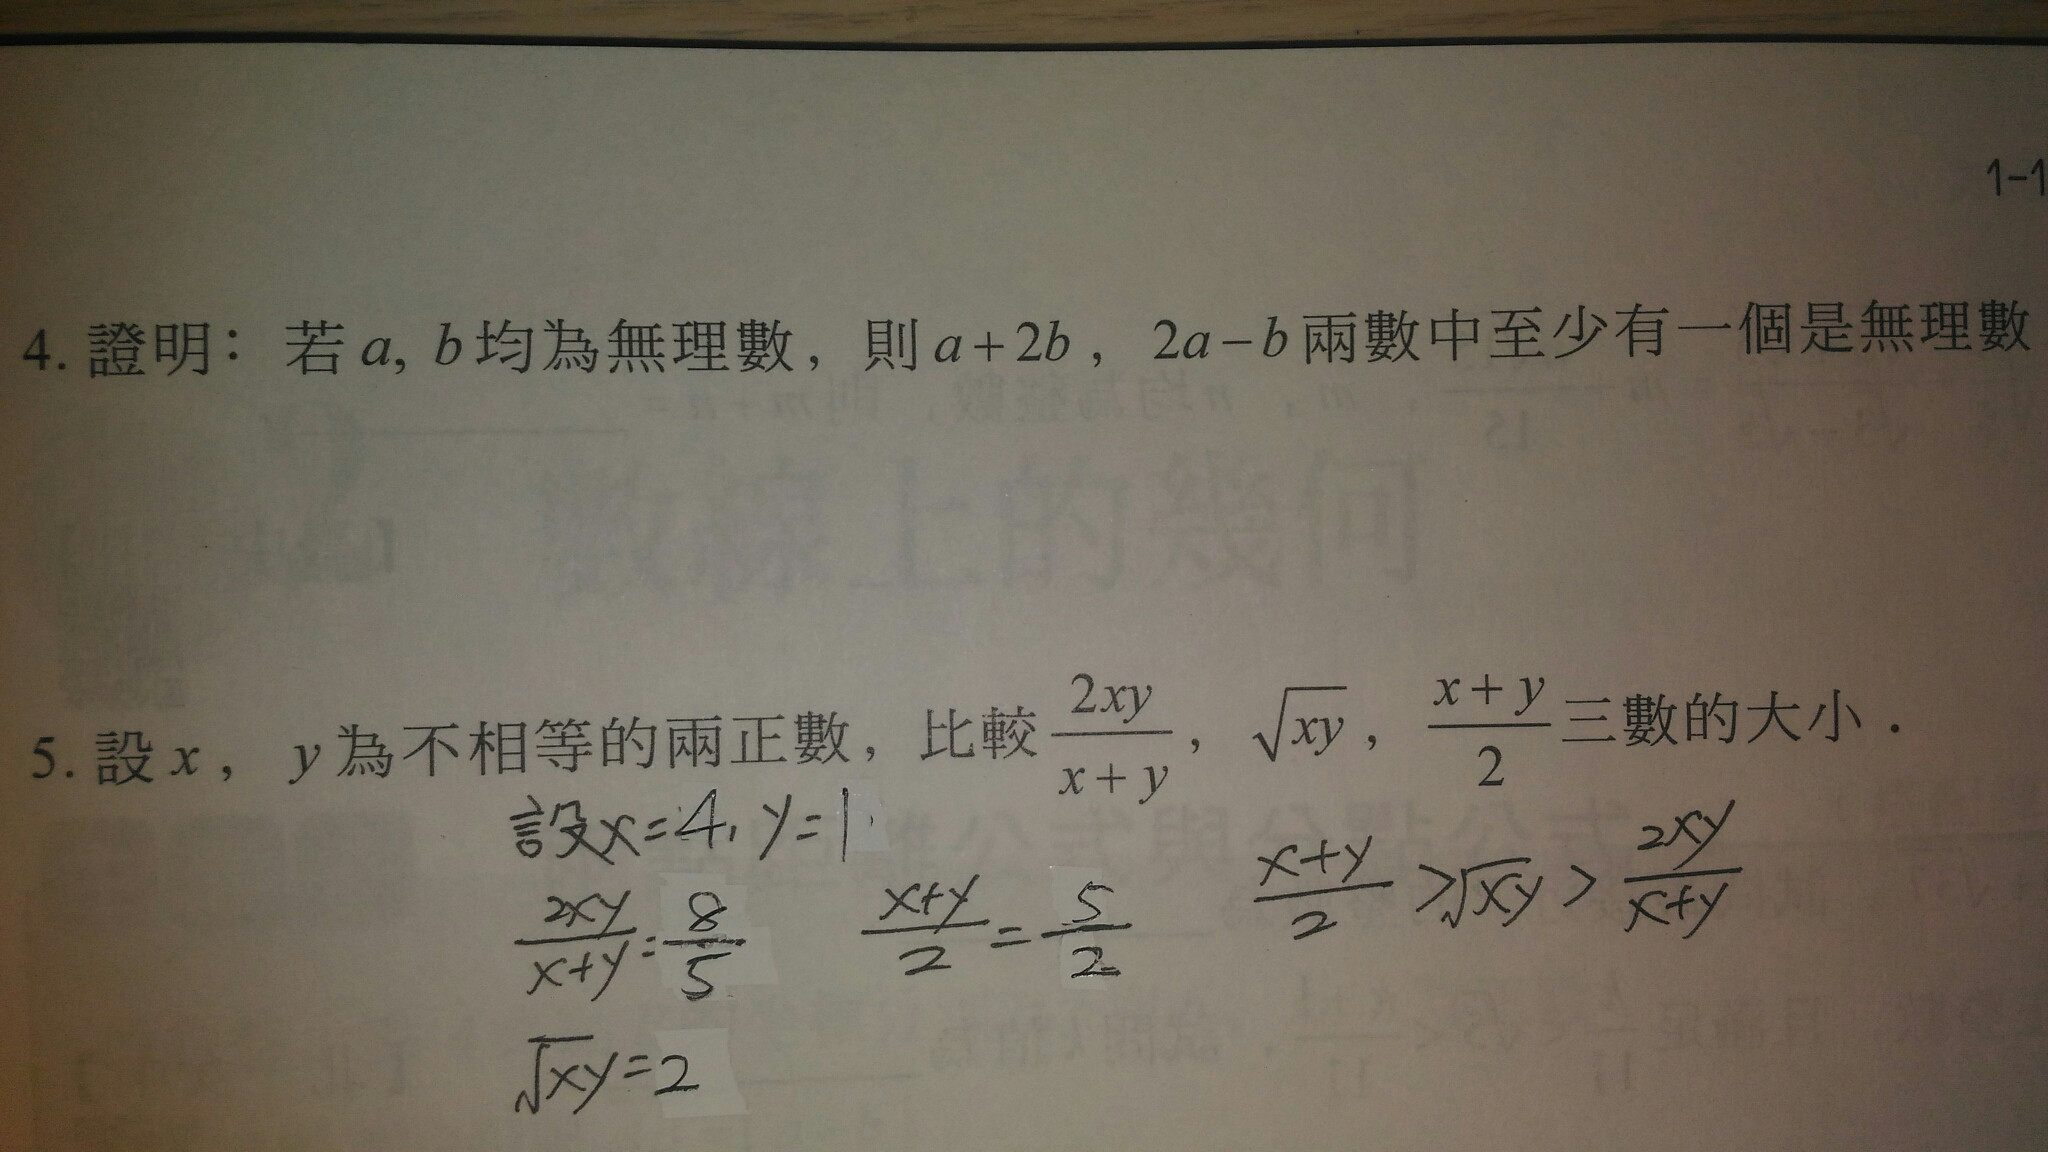 1-1
4. 證明：若 a, b 均為無理數，則 a + 2b ， 2a − b 兩數中至少有一個是無理數
數線上的幾何
5. 設 x ， y 為不相等的兩正數，比較 2xy/(x + y) ， √xy ， (x + y)/2 三數的大小．
設x=4, y=1.
2xy/(x+y) = 8/5  (x+y)/2 = 5/2  (x+y)/2 > √xy > 2xy/(x+y)
√xy = 2